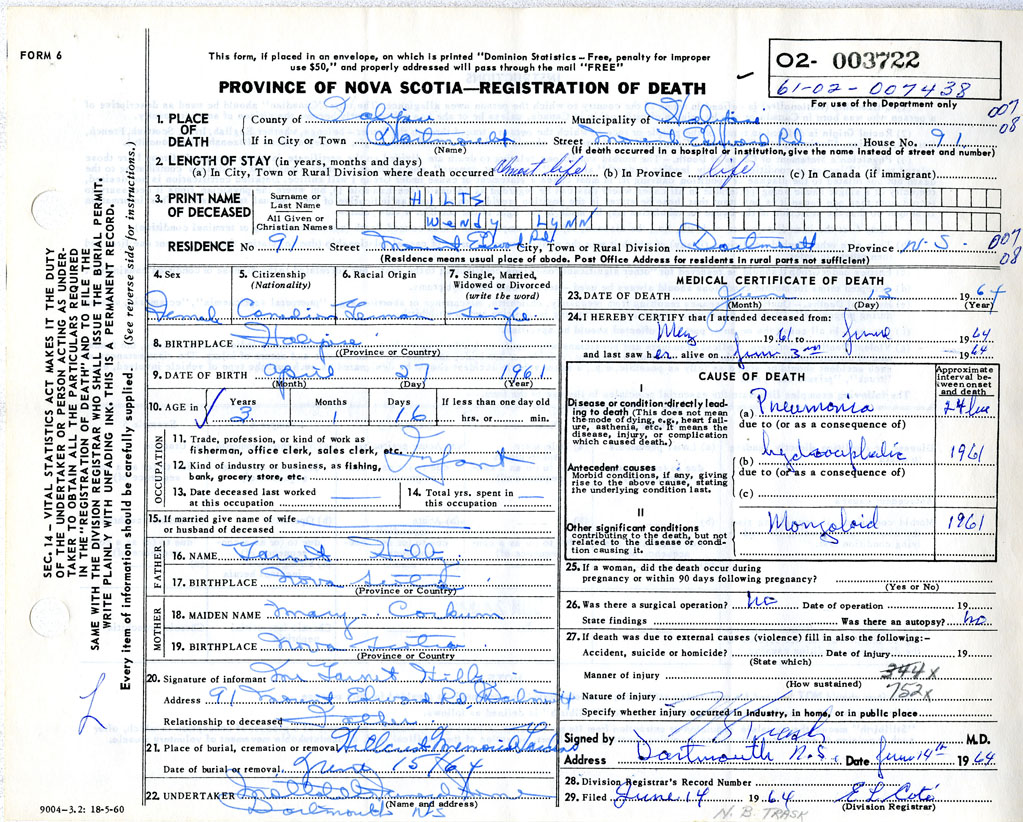 FORM 6
This form, if placed in an envelope, on which is printed "Dominion Statistics – Free, penalty for improper
use $50," and properly addressed will pass through the mail "FREE"
02- 003722
61-02-007438
For use of the Department only
PROVINCE OF NOVA SCOTIA—REGISTRATION OF DEATH
007
08
1. PLACE OF DEATH
County of Halifax Municipality of Halifax
If in City or Town Dartmouth Street Mount Edward Rd House No. 91
(Name) (If death occurred in a hospital or institution, give the name instead of street and number)
2. LENGTH OF STAY (in years, months and days)
(a) In City, Town or Rural Division where death occurred almost life (b) In Province life (c) In Canada (if immigrant)
3. PRINT NAME OF DECEASED
Surname or Last Name HILTS
All Given or Christian Names Wendy Lynn
RESIDENCE No 91 Street Mount Edward Rd City, Town or Rural Division Dartmouth Province N.S. 007
08
(Residence means usual place of abode. Post Office Address for residents in rural parts not sufficient)
4. Sex Female
5. Citizenship (Nationality) Canadian
6. Racial Origin German
7. Single, Married, Widowed or Divorced (write the word) Single
8. BIRTHPLACE Halifax
(Province or Country)
9. DATE OF BIRTH April 27 1961
(Month) (Day) (Year)
10. AGE in Years Months Days If less than one day old
3 1 16 hrs. or min.
OCCUPATION
11. Trade, profession, or kind of work as
fisherman, office clerk, sales clerk, etc. Infant
12. Kind of industry or business, as fishing,
bank, grocery store, etc.
13. Date deceased last worked
at this occupation
14. Total yrs. spent in
this occupation
15. If married give name of wife
or husband of deceased
FATHER
16. NAME Hilts
17. BIRTHPLACE Nova Scotia
(Province or Country)
MOTHER
18. MAIDEN NAME Mary Corkum
19. BIRTHPLACE Nova Scotia
(Province or Country)
20. Signature of informant Hilts
Address 91 Mount Edward Rd, Dartmouth
Relationship to deceased Father
21. Place of burial, cremation or removal Hillcrest Memorial Gardens
Date of burial or removal June 15/64
22. UNDERTAKER
(Name and address)
Dartmouth NS
9004-3.2: 18-5-60
MEDICAL CERTIFICATE OF DEATH
23. DATE OF DEATH June 13 1964
(Month) (Day) (Year)
24. I HEREBY CERTIFY that I attended deceased from:
May 1961 to June 1964
and last saw her alive on June 3rd 1964
CAUSE OF DEATH
Approximate interval between onset and death
I
Disease or condition directly leading to death (This does not mean the mode of dying, e.g., heart failure, asthenia, etc. It means the disease, injury, or complication which caused death.)
(a) Pneumonia 24
due to (or as a consequence of)
Antecedent causes
Morbid conditions, if any, giving rise to the above cause, stating the underlying condition last.
(b) hydrocephalic 1961
due to (or as a consequence of)
(c)
II
Other significant conditions
contributing to the death, but not related to the disease or condition causing it.
Mongoloid 1961
25. If a woman, did the death occur during
pregnancy or within 90 days following pregnancy?
(Yes or No)
26. Was there a surgical operation? no Date of operation 19
State findings Was there an autopsy? no
27. If death was due to external causes (violence) fill in also the following:–
Accident, suicide or homicide? Date of injury 19
(State which)
Manner of injury 344x
(How sustained)
Nature of injury 752x
Specify whether injury occurred in Industry, in home, or in public place
Signed by Trask M.D.
Address Dartmouth N.S. Date June 14th 1964
28. Division Registrar's Record Number
29. Filed June 14 1964
(Division Registrar)
N. B. TRASK
SEC. 14 – VITAL STATISTICS ACT MAKES IT THE DUTY
OF THE UNDERTAKER OR PERSON ACTING AS UNDER-
TAKER TO OBTAIN ALL THE PARTICULARS REQUIRED
IN THE "REGISTRATION OF DEATH" AND TO FILE THE
SAME WITH THE DIVISION REGISTRAR WHO SHALL ISSUE THE BURIAL PERMIT.
WRITE PLAINLY WITH UNFADING INK. THIS IS A PERMANENT RECORD.
Every item of information should be carefully supplied. (See reverse side for instructions.)